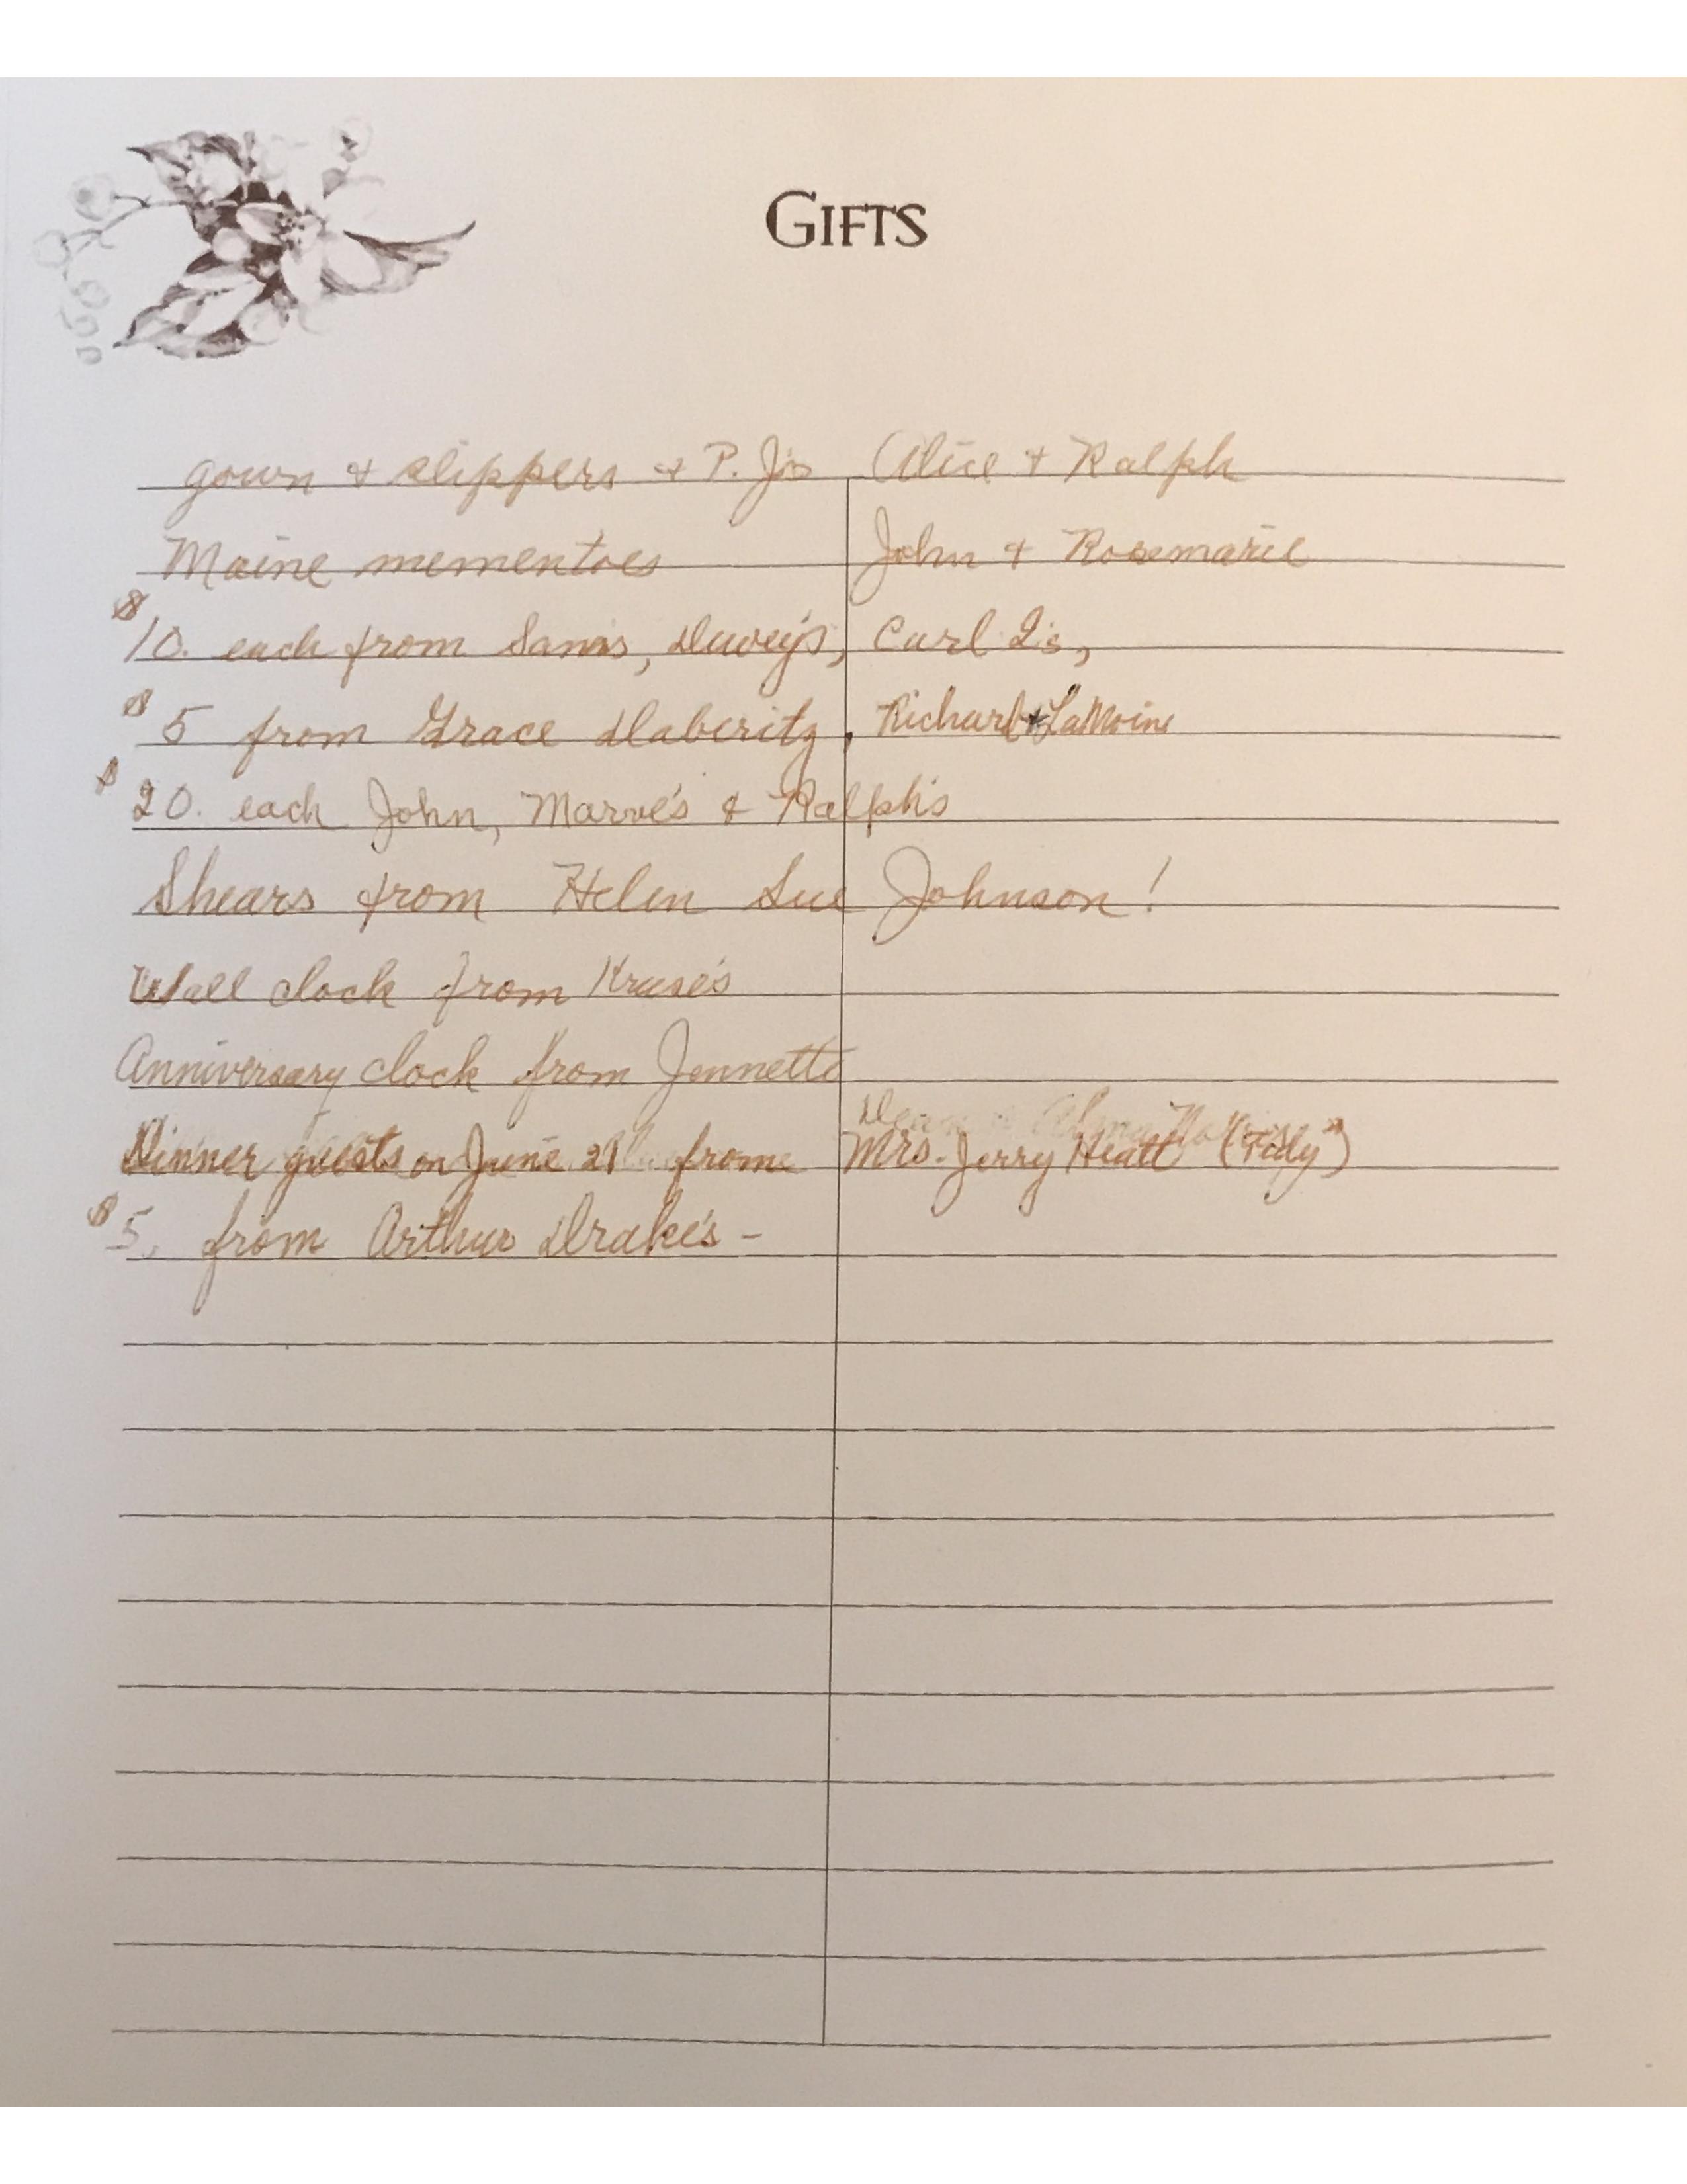 GIFTS
gown & slippers & P. J's Alice & Ralph
Maine mementoes John & Rosemarie
$10. each from Sam's, Dewey's, Carl Q's,
$5 from Grace Daberitz, Richard & LaMoine
$20. each John, Marve's & Ralph's
Shears from Helen Sue Johnson!
Wall clock from Kruse's
Anniversary clock from Jennette
Dinner guests on June 21 from Mrs. Jerry Hiatt
$5. from Arthur Drake's -